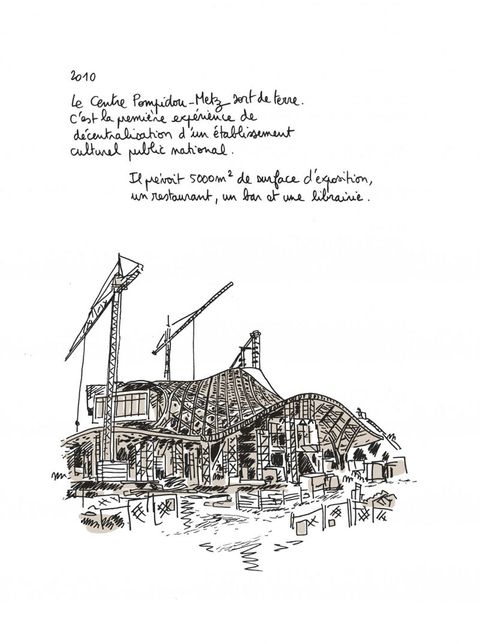 2010
Le Centre Pompidou-Metz sort de terre.
C'est la première expérience de
décentralisation d'un établissement
culturel public national.
Il prévoit 5000m² de surface d'exposition,
un restaurant, un bar et une librairie.